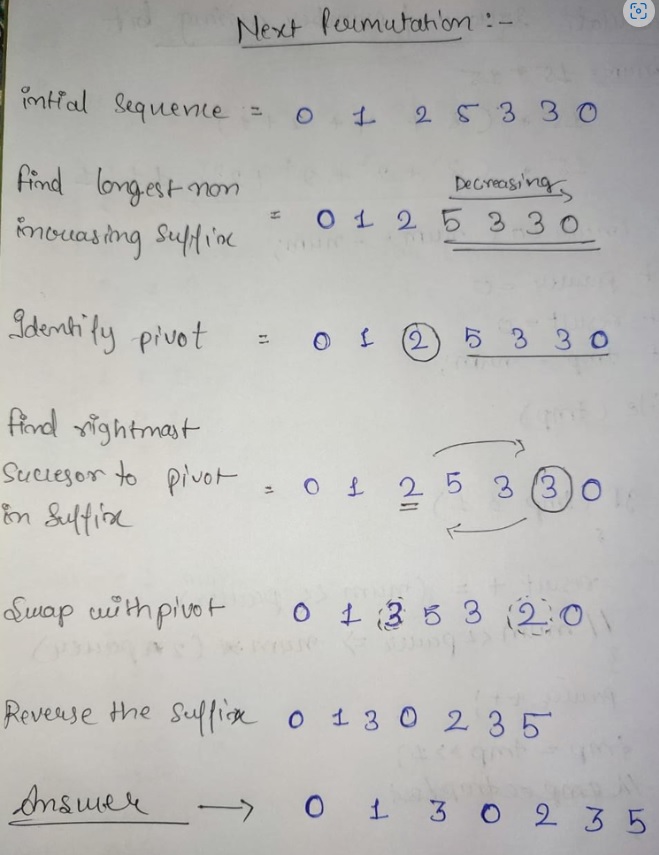 Next Permutation :-
intial sequence = 0 1 2 5 3 3 0
find longest non
Decreasing
increasing suffix = 0 1 2 5 3 3 0
Identify pivot = 0 1 2 5 3 3 0
find rightmast
succesor to pivot = 0 1 2 5 3 3 0
in suffix
Swap with pivot 0 1 3 5 3 2 0
Reverse the suffix 0 1 3 0 2 3 5
Answer → 0 1 3 0 2 3 5